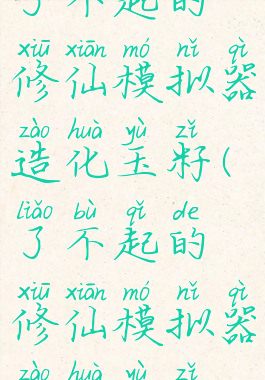 了不起的
xiū xiān mó nǐ qì
修仙模拟器
zào huà yù zǐ
造化玉籽(
liǎo bù qǐ de
了不起的
xiū xiān mó nǐ qì
修仙模拟器
zào huà yù zǐ